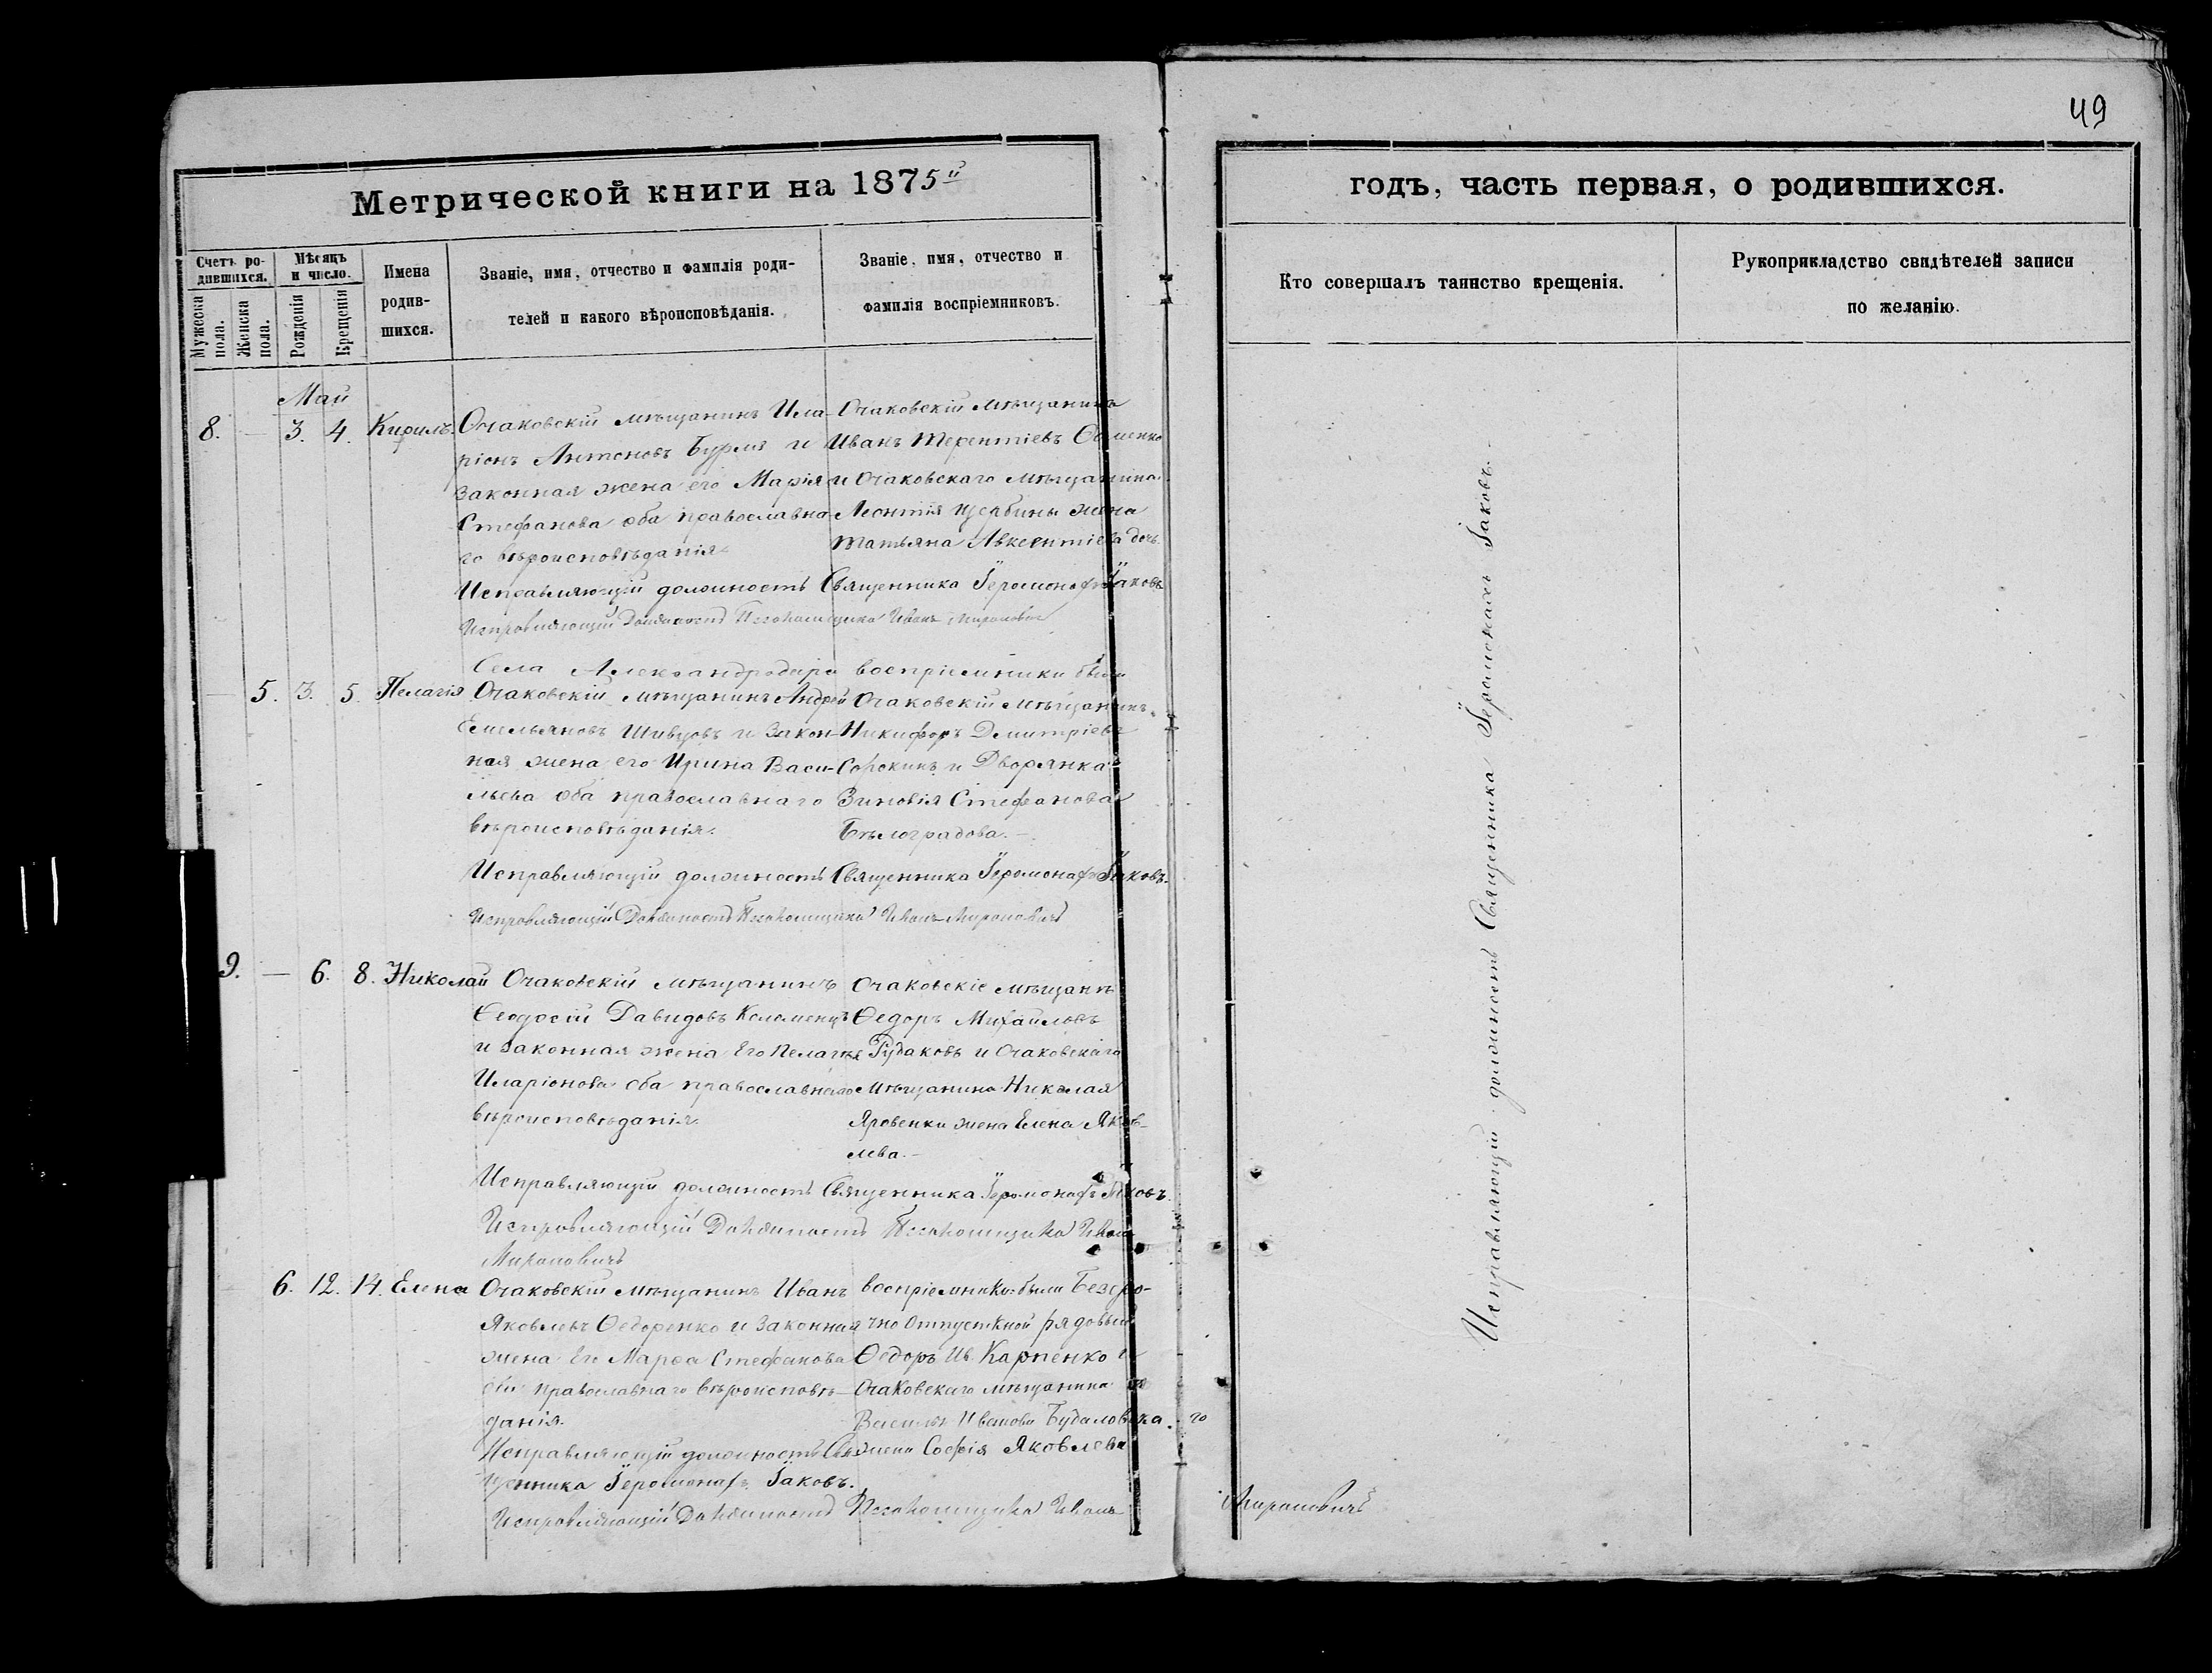 49
Метрической книги на 1875й
годъ, часть первая, о родившихся.
Счетъ родившихся.
Мужеска пола.
Женска пола.
Мѣсяцъ и число.
Рожденія
Крещенія
Имена родив-
шихся.
Званіе, имя, отчество и фамилія роди-
телей и какого вѣроисповѣданія.
Званіе, имя, отчество и
фамилія воспріемниковъ.
Кто совершалъ таинство крещенія.
Рукоприкладство свидѣтелей записи
по желанію.
Май
8. — 3. 4. Кирилъ.
Очаковскій мѣщанинъ Ила-
ріонъ Антоновъ Бурля и
законная жена его Марія
Стефанова оба православна-
го вѣроисповѣданія.
Очаковскій мѣщанинъ
Иванъ Терентіевъ
и Очаковскаго мѣщанина
Леонтія Щербины жена
Татьяна Авксентіева дочь.
Исправляющій должность Священника Іеромонахъ Іаковъ
Исправляющій Должность Псаломщика Иванъ Мироновичъ
Села Александродара воспріемники были
— 5. 3. 5. Пелагія
Очаковскій мѣщанинъ Андрей
Емельяновъ Шивцовъ и закон-
ная жена его Ирина Васи-
льева оба православнаго
вѣроисповѣданія.
Очаковскій мѣщанинъ
Никифоръ Димитріевъ
Сорокинъ и Дворянка
Зиновія Стефанова
Бѣлоградова. —
Исправляющій должность Священника Іеромонахъ Іаковъ.
Исправляющій Должность Псаломщика Иванъ Мироновичъ
9. — 6. 8. Николай
Очаковскій мѣщанинъ
Ѳеодосій Давидовъ Коломеецъ
и законная жена Его Пелагія
Иларіонова оба православнаго
вѣроисповѣданія.
Очаковскіе мѣщанѣ
Ѳедоръ Михайловъ
Рудаковъ и Очаковскаго
мѣщанина Николая
Яровенки жена Елена Яков-
лева. —
Исправляющій должность Священника Іеромонахъ Іаковъ.
Исправляющій Должность Псаломщика Иванъ
Мироновичъ
6. 12. 14. Елена
Очаковскій мѣщанинъ Иванъ
Яковлевъ Ѳедоренко и законная
жена Его Марѳа Стефанова
оба православнаго вѣроисповѣ-
данія.
воспріемники были Безсро-
чно Отпускной рядовый
Ѳедоръ Ив. Карпенко и
Очаковскаго мѣщанина
Василія Иванова Будаловска-го
жена Софія Яковлева
Исправляющій должность Свя-
щенника Іеромонахъ Іаковъ.
Исправляющій Должность Псаломщика Иванъ Мироновичъ
Исправляющій должность Священника Іеромонахъ Іаковъ.